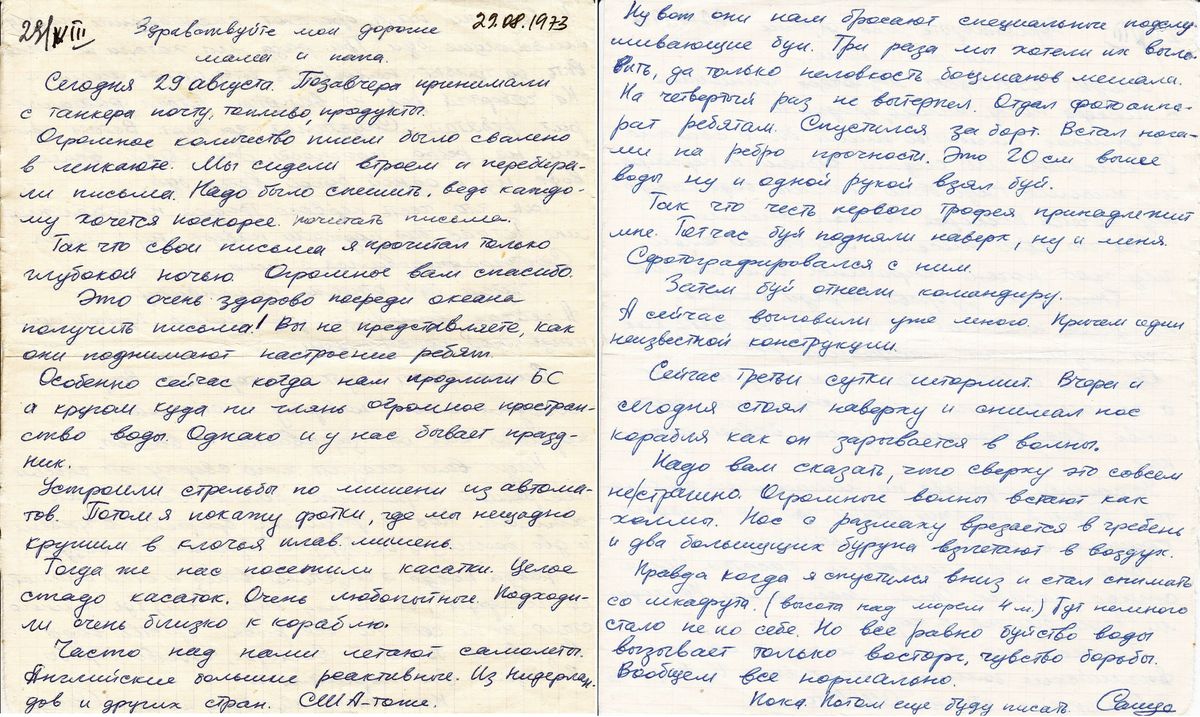 29/VIII Здравствуйте мои дорогие 29.08.1973
мама и папа.
Сегодня 29 августа. Позавчера принимали
с танкера почту, топливо, продукты.
Огромное количество писем было свалено
в ленкаюте. Мы сидели втроем и перебира-
ли письма. Надо было спешить, ведь каждо-
му хочется поскорее почитать письма.
Так что свои письма я прочитал только
глубокой ночью. Огромное вам спасибо.
Это очень здорово посреди океана
получить письма! Вы не представляете, как
они поднимают настроение ребят.
Особенно сейчас когда нам продлили БС
а кругом куда ни глянь огромное простран-
ство воды. Однако и у нас бывает празд-
ник.
Устроили стрельбы по мишени из автома-
тов. Потом я покажу фотки, где мы нещадно
крушим в клочья плав. мишень.
Тогда же нас посетили касатки. Целое
стадо касаток. Очень любопытные. Подходи-
ли очень близко к кораблю.
Часто над нами летают самолеты.
Английские большие реактивные. Из Нидерлан-
дов и других стран. США-тоже.
Ну вот они нам бросают специальные подслу-
шивающие буи. Три раза мы хотели их выло-
вить, да только неловкость боцманов мешала.
На четвертый раз не вытерпел. Отдал фотоаппа-
рат ребятам. Спустился за борт. Встал нога-
ми на ребро прочности. Это 20 см выше
воды ну и одной рукой взял буй.
Так что честь первого трофея принадлежит
мне. Тотчас буй подняли наверх, ну и меня.
Сфотографировался с ним.
Затем буй отнесли командиру.
А сейчас выловили уже много. Причем один
неизвестной конструкции.
Сейчас третьи сутки штормит. Вчера и
сегодня стоял наверху и снимал нос
корабля как он зарывается в волны.
Надо вам сказать, что сверху это совсем
не/страшно. Огромные волны встают как
холмы. Нос с размаху врезается в гребень
и два большущих буруна взлетают в воздух.
Правда когда я спустился вниз и стал снимать
со шкафута. (высота над морем 4 м.) Тут немного
стало не по себе. Но все равно буйство воды
вызывает только восторг, чувство борьбы.
Вообщем все нормально.
Пока. Потом еще буду писать. Саша